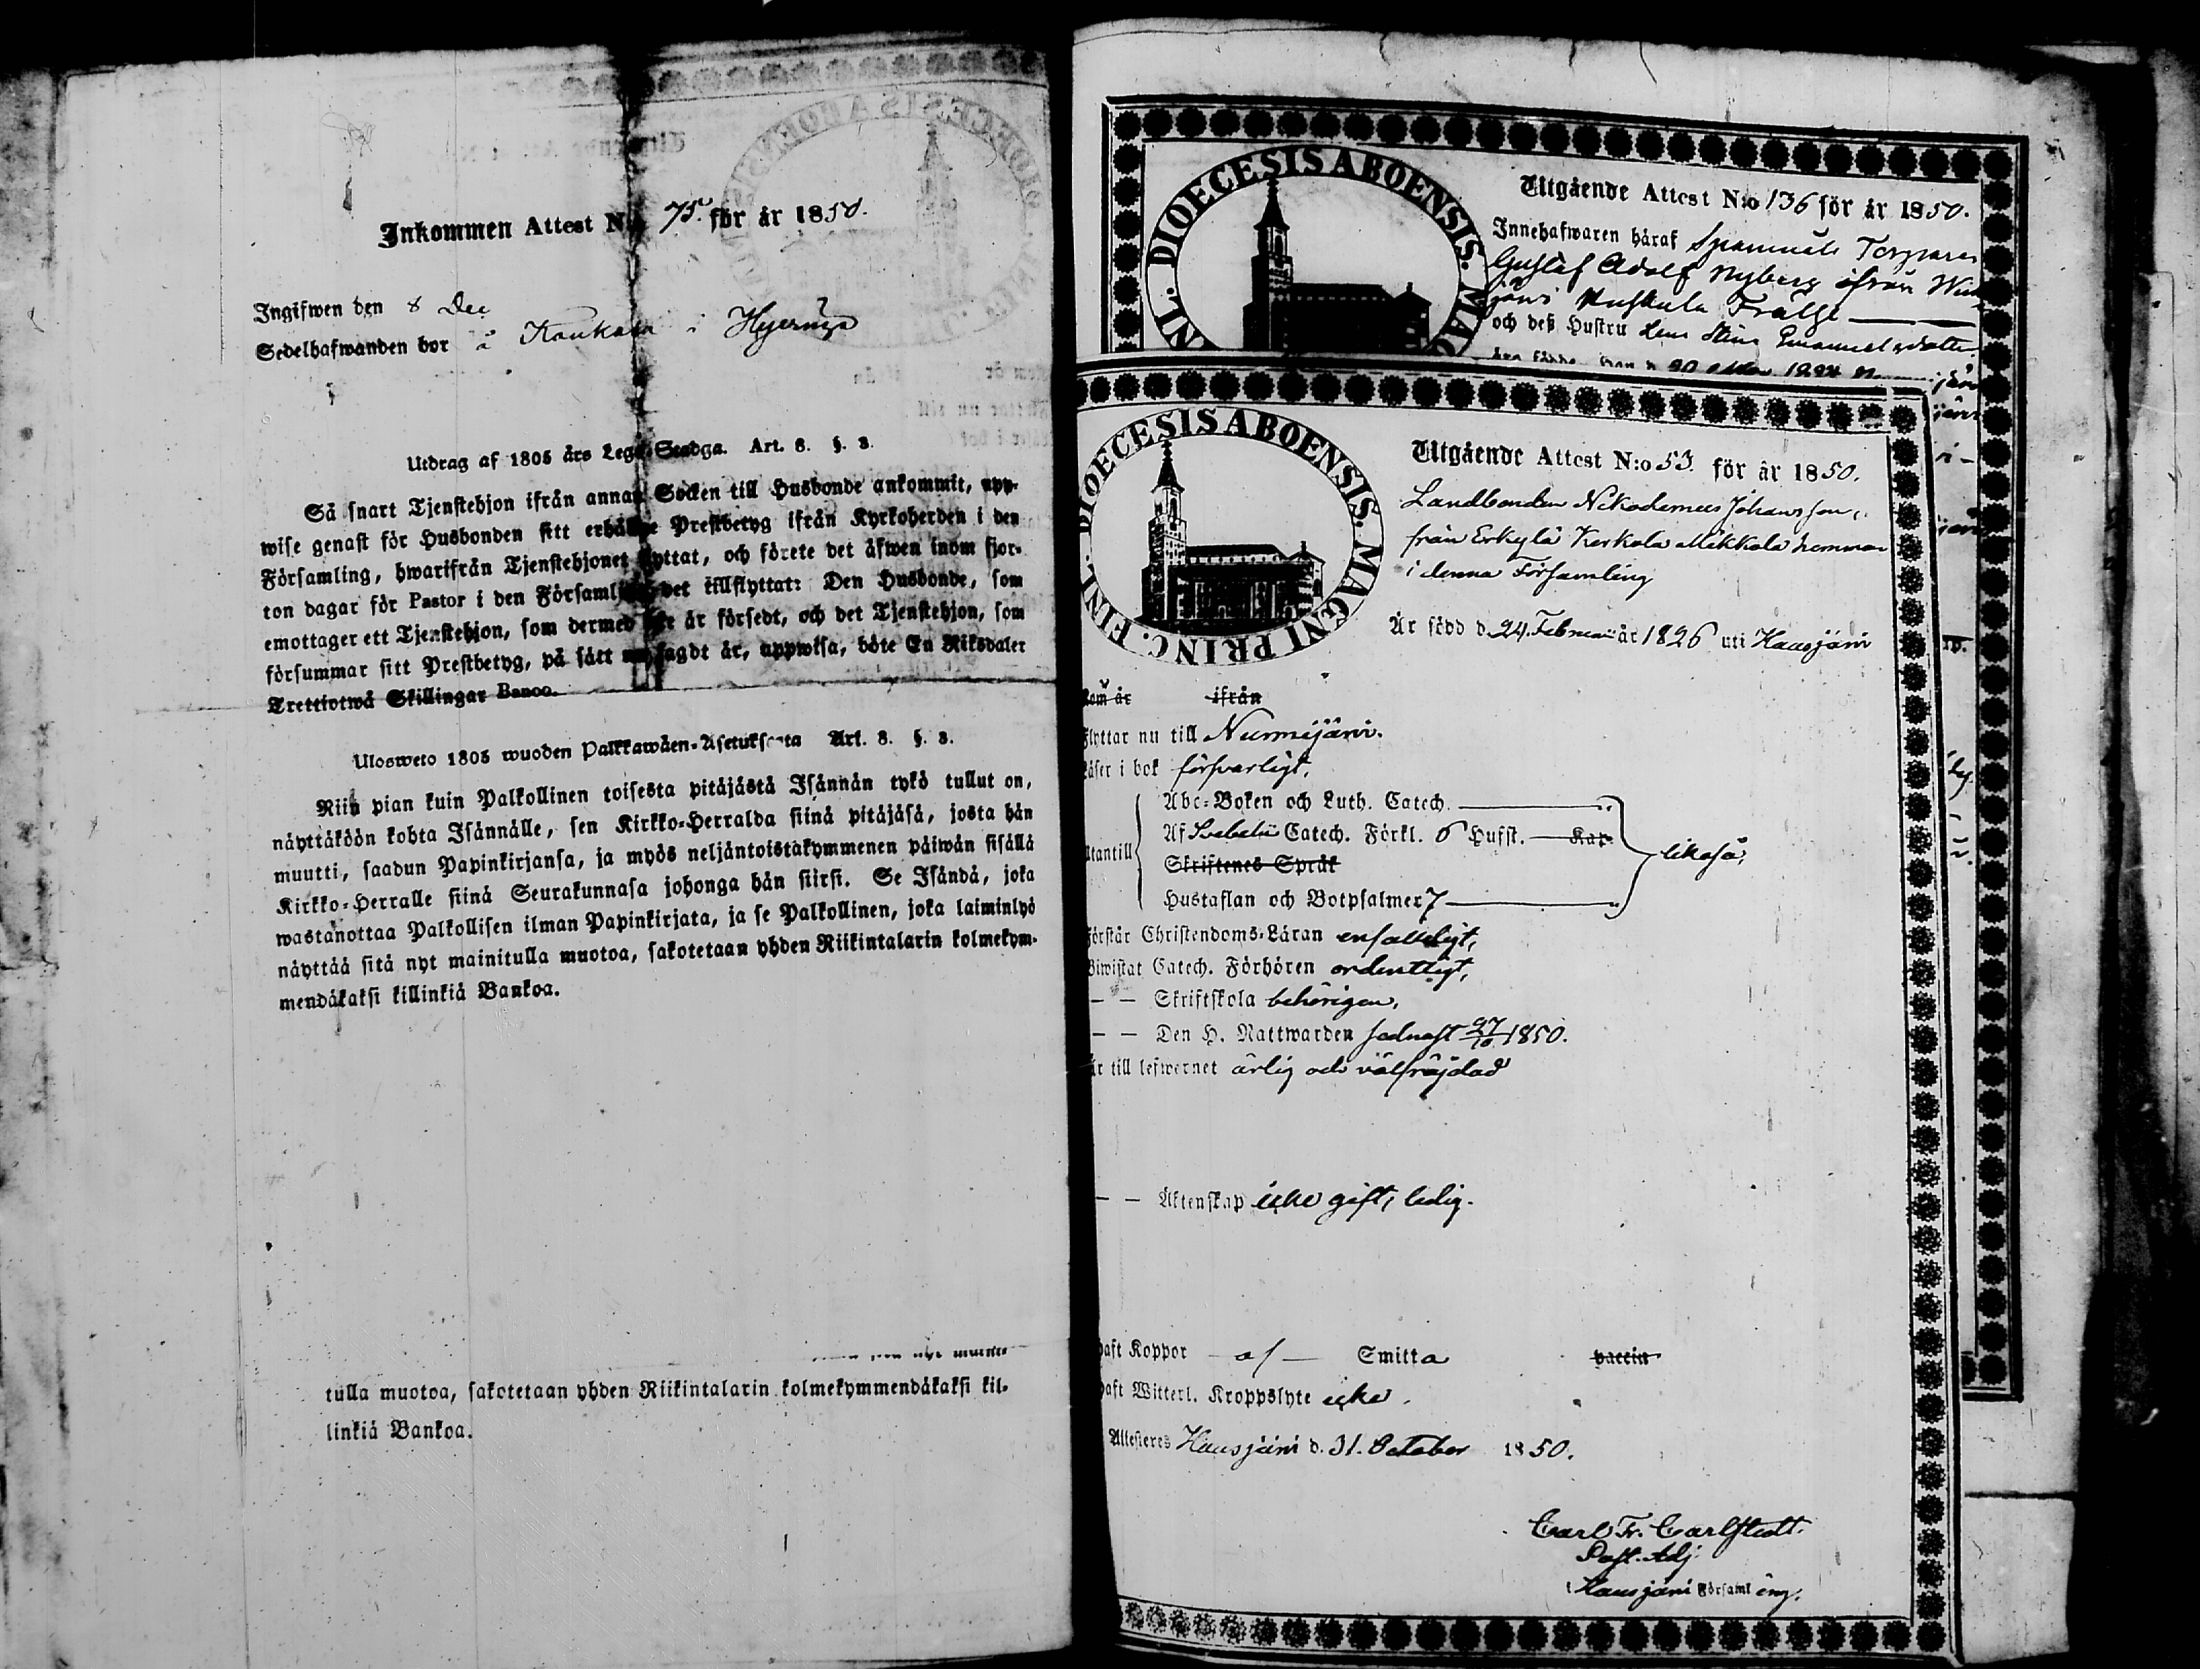 Inkommen Attest N:o 75. för år 1850.
Ingifwen den 8 Dec
Sedelhafwanden bor å Kaukas i
Utdrag af 1805 års Lego-Stadga. Art. 8. §. 3.
Så snart Tjenstehjon ifrån annan Socken till Husbonde ankommit, upp-
wise genast för Husbonden sitt erhållne Prestbetyg ifrån Kyrkoherden i den
Församling, hwarifrån Tjenstehjonet flyttat, och förete det äfwen inom fjor-
ton dagar för Pastor i den Församling det tillflyttat: Den Husbonde, som
emottager ett Tjenstehjon, som dermed är försedt, och det Tjenstehjon, som
försummar sitt Prestbetyg, på sätt sagdt är, uppwisa, böte En Riksdaler
Trettiotwå Skillingar Banco.
Ulosweto 1805 wuoden Palkkawäen-Asetuksesta Art. 8. §. 3.
Niin pian kuin Palkollinen toisesta pitäjästä Isännän tykö tullut on,
näyttäköön kohta Isännälle, sen Kirkko-Herralda siinä pitäjäsä, josta hän
muutti, saadun Papinkirjansa, ja myös neljäntoistakymmenen päiwän sisällä
Kirkko-Herralle siinä Seurakunnasa johonga hän siirsi. Se Isändä, joka
wastanottaa Palkollisen ilman Papinkirjata, ja se Palkollinen, joka laiminlyö
näyttää sitä nyt mainitulla muotoa, sakotetaan yhden Riikintalarin kolmekym-
mendäkaksi killinkiä Bankoa.
tulla muotoa, sakotetaan yhden Riikintalarin kolmekymmendäkaksi kil-
linkiä Bankoa.
DIOECESIS ABOENSIS. MAG
Utgående Attest N:o 136 för år 1850.
Innehafwaren häraf Torparen
Gustaf Adolf Nyberg ifrån
Frälse
och deß Hustru Lena Stina Emanuelsdotter
DIOECESIS ABOENSIS. MAGNI PRINC. FINL.
Utgående Attest N:o 53. för år 1850.
Landbonden Nikodemus Johansson,
från Erkylä Kerkola Mikkola hemman
i denna Församling
Är född d. 24. Februari år 1826 uti Hausjärvi
kom är ifrån
Flyttar nu till Nurmijärvi.
Läser i bok försvarligt,
Abc-Boken och Luth. Catech.
Utantill Af Svebelii Catech. Förkl. 6 Hufst. Kap. likaså,
Skriftenes Språk
Hustaflan och Botpsalmer 7
Förstår Christendoms-Läran enfaldigt,
Biwistat Catech. Förhören ordentligt,
— — Skriftskola behörigen,
— — Den H. Nattwarden sednast 27/10 1850.
Är till lefwernet ärlig och välfräjdad
— — Äktenskap icke gift, ledig.
Haft Koppor af Smitta vaccin
Haft Witterl. Kroppslyte icke.
Attesteres Hausjärvi d. 31. October 1850.
Carl Fr. Carlstedt.
Past. Adj.
i Hausjärvi Församling.